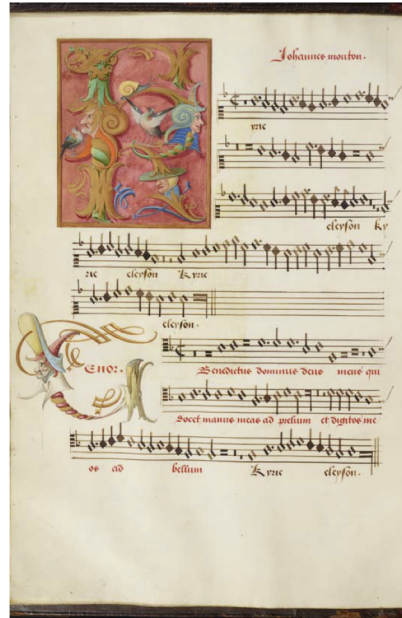 Johannes mouton.
K yrie
eleyson Ky
rie eleyson Kyrie
eleyson.
Tenor. Benedictus dominus deus meus qui
docet manus meas ad prelium et digitos me
os ad bellum Kyrie eleyson.